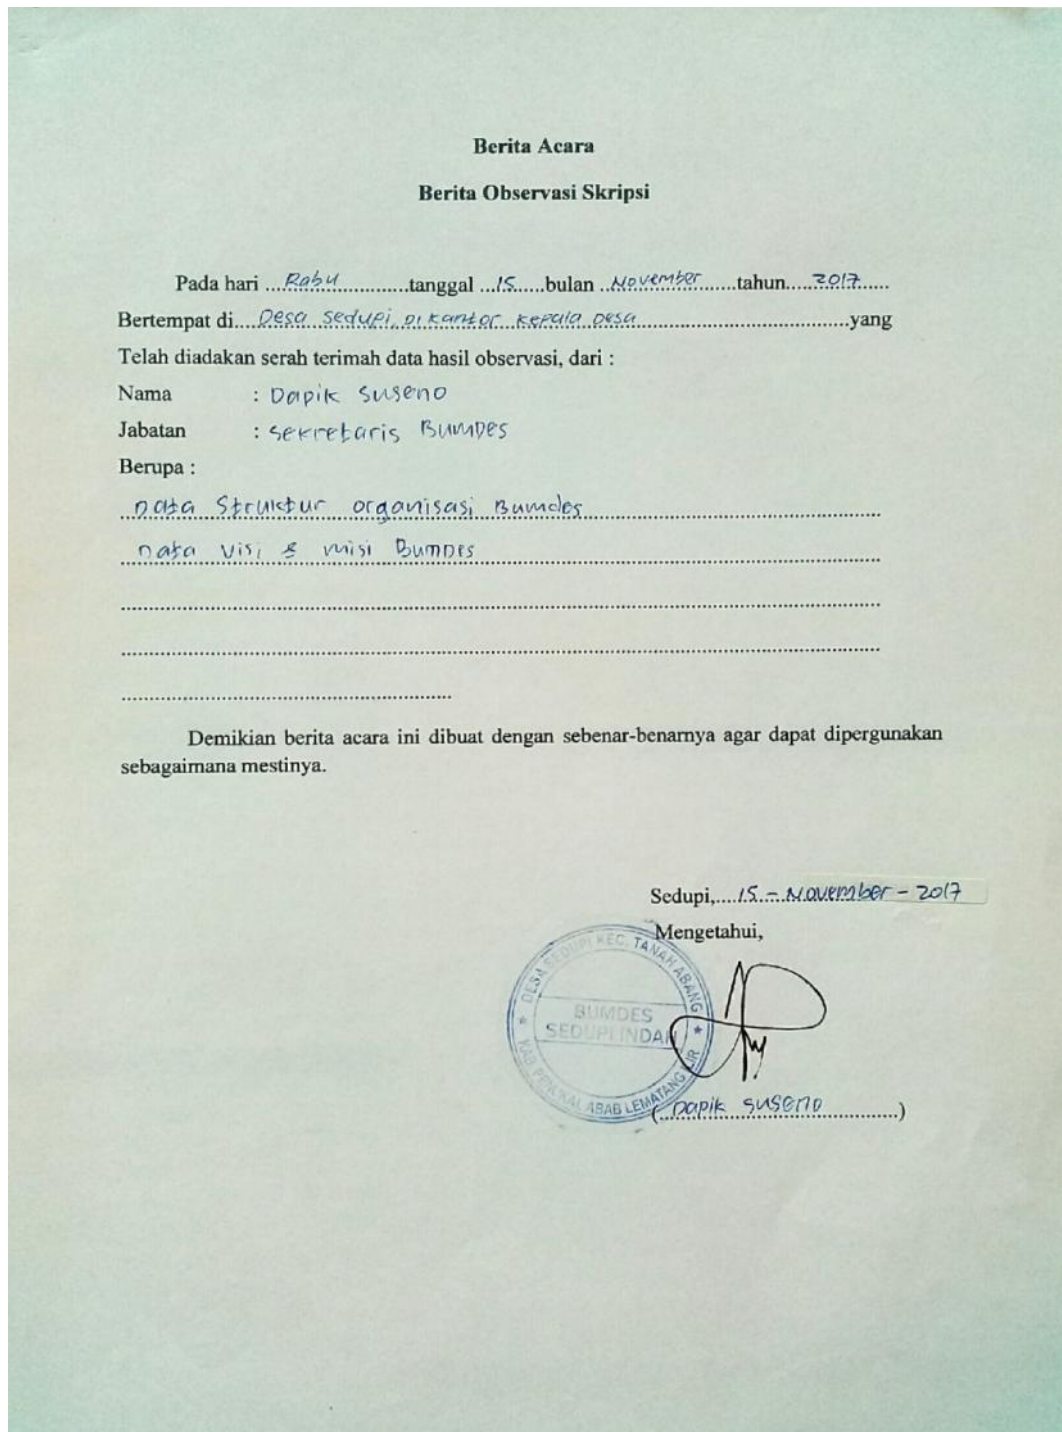 Berita Acara
Berita Observasi Skripsi
Pada hari ...Rabu.............tanggal ...15......bulan ...November.......tahun.....2017......
Bertempat di....Desa sedupi, Di kantor kepala Desa..........................................yang
Telah diadakan serah terimah data hasil observasi, dari :
Nama : Dapik Suseno
Jabatan : sekretaris BUMDes
Berupa :
Data Struktur organisasi Bumdes
Data visi & misi BUMDes
Demikian berita acara ini dibuat dengan sebenar-benarnya agar dapat dipergunakan
sebagaimana mestinya.
Sedupi,....15 - November - 2017
Mengetahui,
DESA SEDUPI KEC. TANAH ABANG
BUMDES
SEDUPI INDAH
KAB. PENUKAL ABAB LEMATANG ILIR
(....Dapik suseno..............)